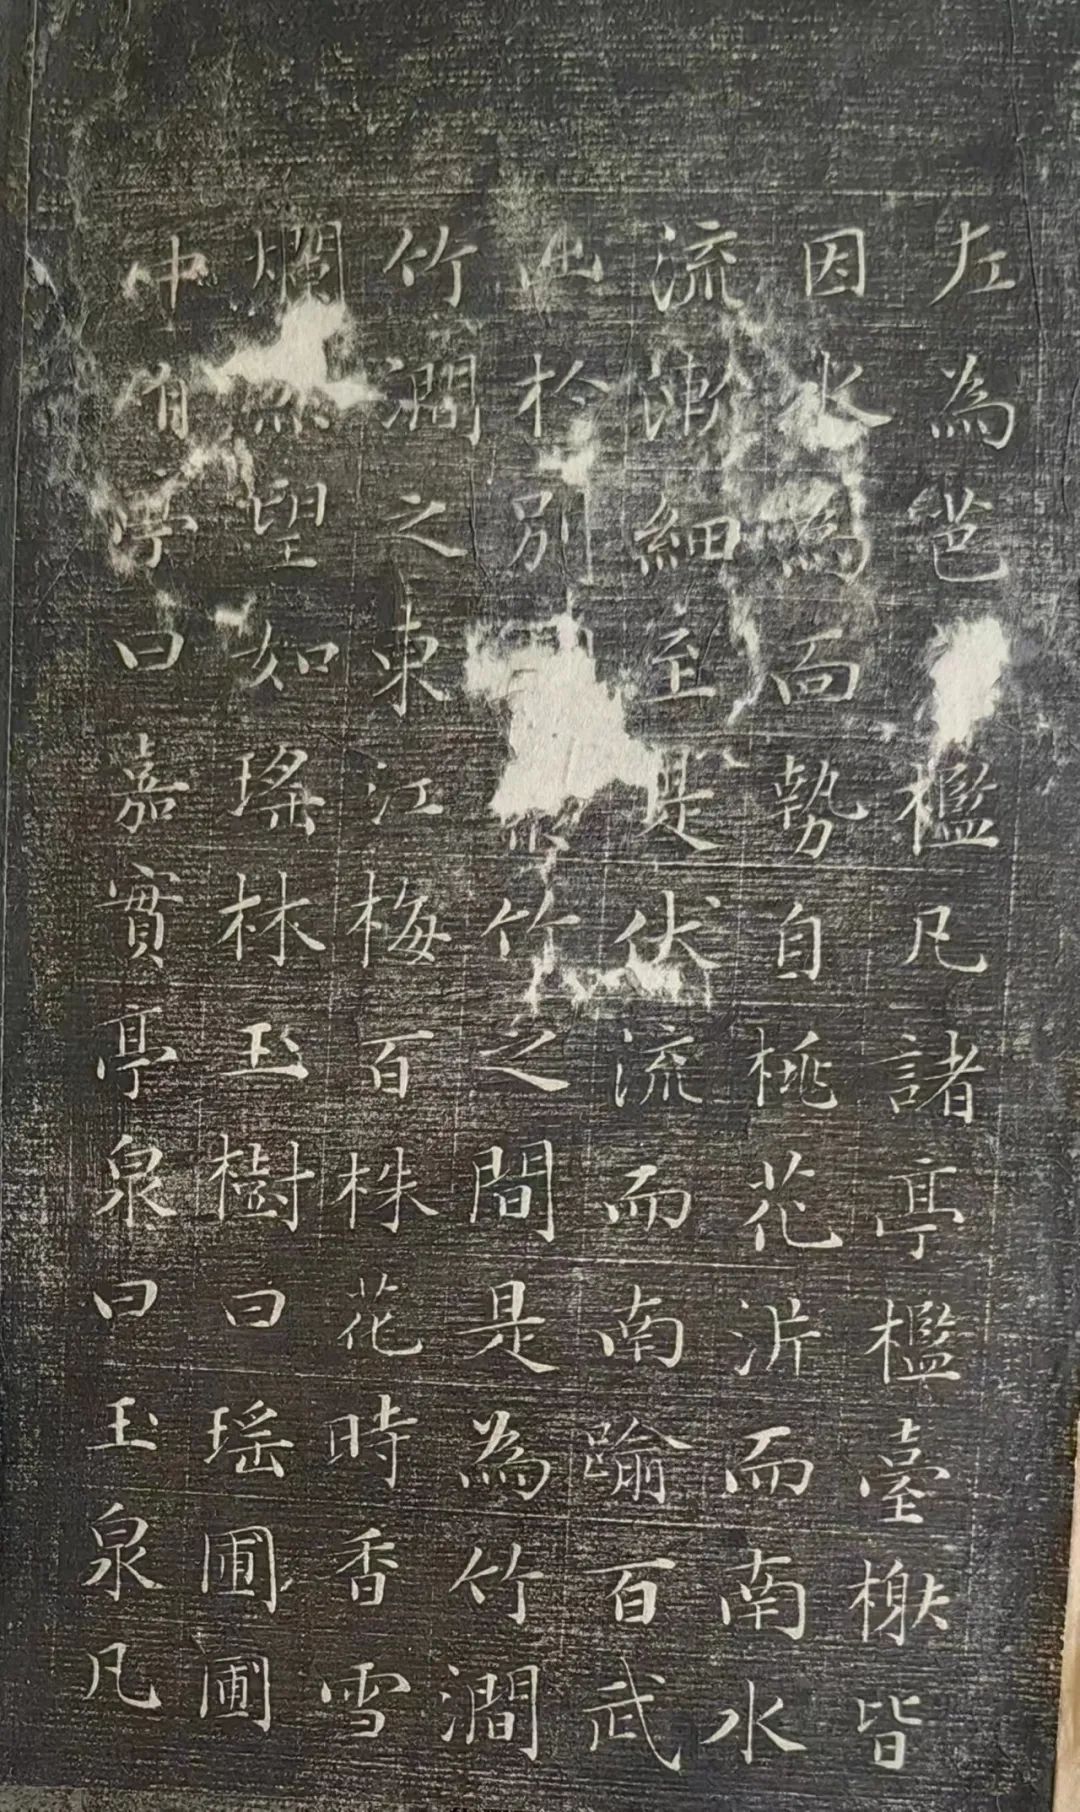 左為芭檻凡諸亭檻臺榭皆
因水為面勢自桃花沜而南水
流漸細至是伏流而南踰百武
出於別竹之間是為竹澗
竹澗之東江梅百株花時香雪
爛然望如瑤林玉樹曰瑤圃圃
中有亭曰嘉實亭泉曰玉泉凡